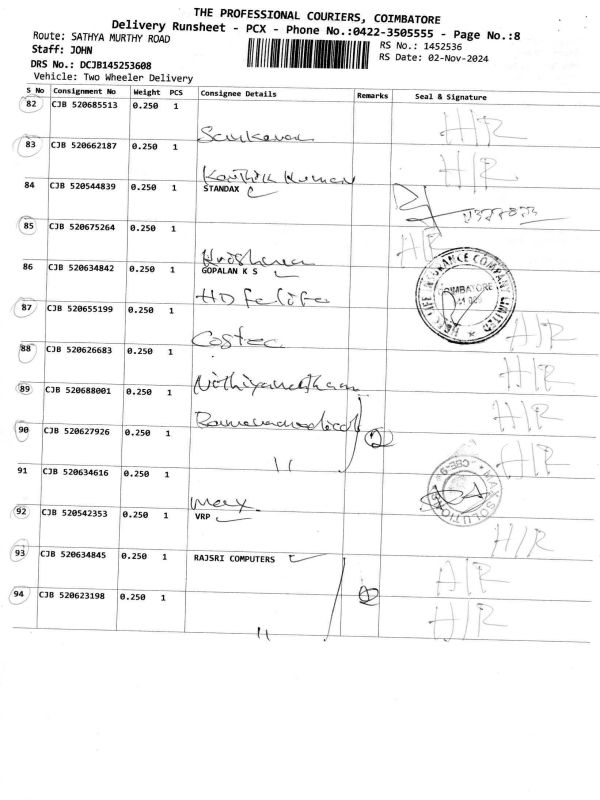 THE PROFESSIONAL COURIERS, COIMBATORE
Delivery Runsheet - PCX - Phone No.:0422-3505555 - Page No.:8
Route: SATHYA MURTHY ROAD
RS No.: 1452536
Staff: JOHN
RS Date: 02-Nov-2024
DRS No.: DCJB145253608
Vehicle: Two Wheeler Delivery
S No Consignment No Weight PCS Consignee Details Remarks Seal & Signature
82 CJB 520685513 0.250 1 H/R
83 CJB 520662187 0.250 1 H/R
Karthik Kumar
84 CJB 520544839 0.250 1 STANDAX
85 CJB 520675264 0.250 1 H/R
86 CJB 520634842 0.250 1 GOPALAN K S
HD felife
COIMBATORE
87 CJB 520655199 0.250 1 H/R
Costec
88 CJB 520626683 0.250 1 H/R
89 CJB 520688001 0.250 1 H/R
90 CJB 520627926 0.250 1 2 H/R
11
91 CJB 520634616 0.250 1 MAX SOLUTIONS CBE-9
Max
92 CJB 520542353 0.250 1 VRP H/R
93 CJB 520634845 0.250 1 RAJSRI COMPUTERS H/R
94 CJB 520623198 0.250 1 2 H/R
11